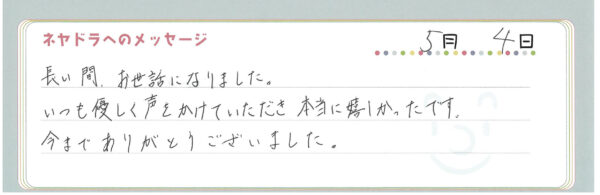 ネヤドラへのメッセージ
5月 4日
長い間、お世話になりました。
いつも優しく声をかけていただき 本当に嬉しかったです。
今までありがとうございました。